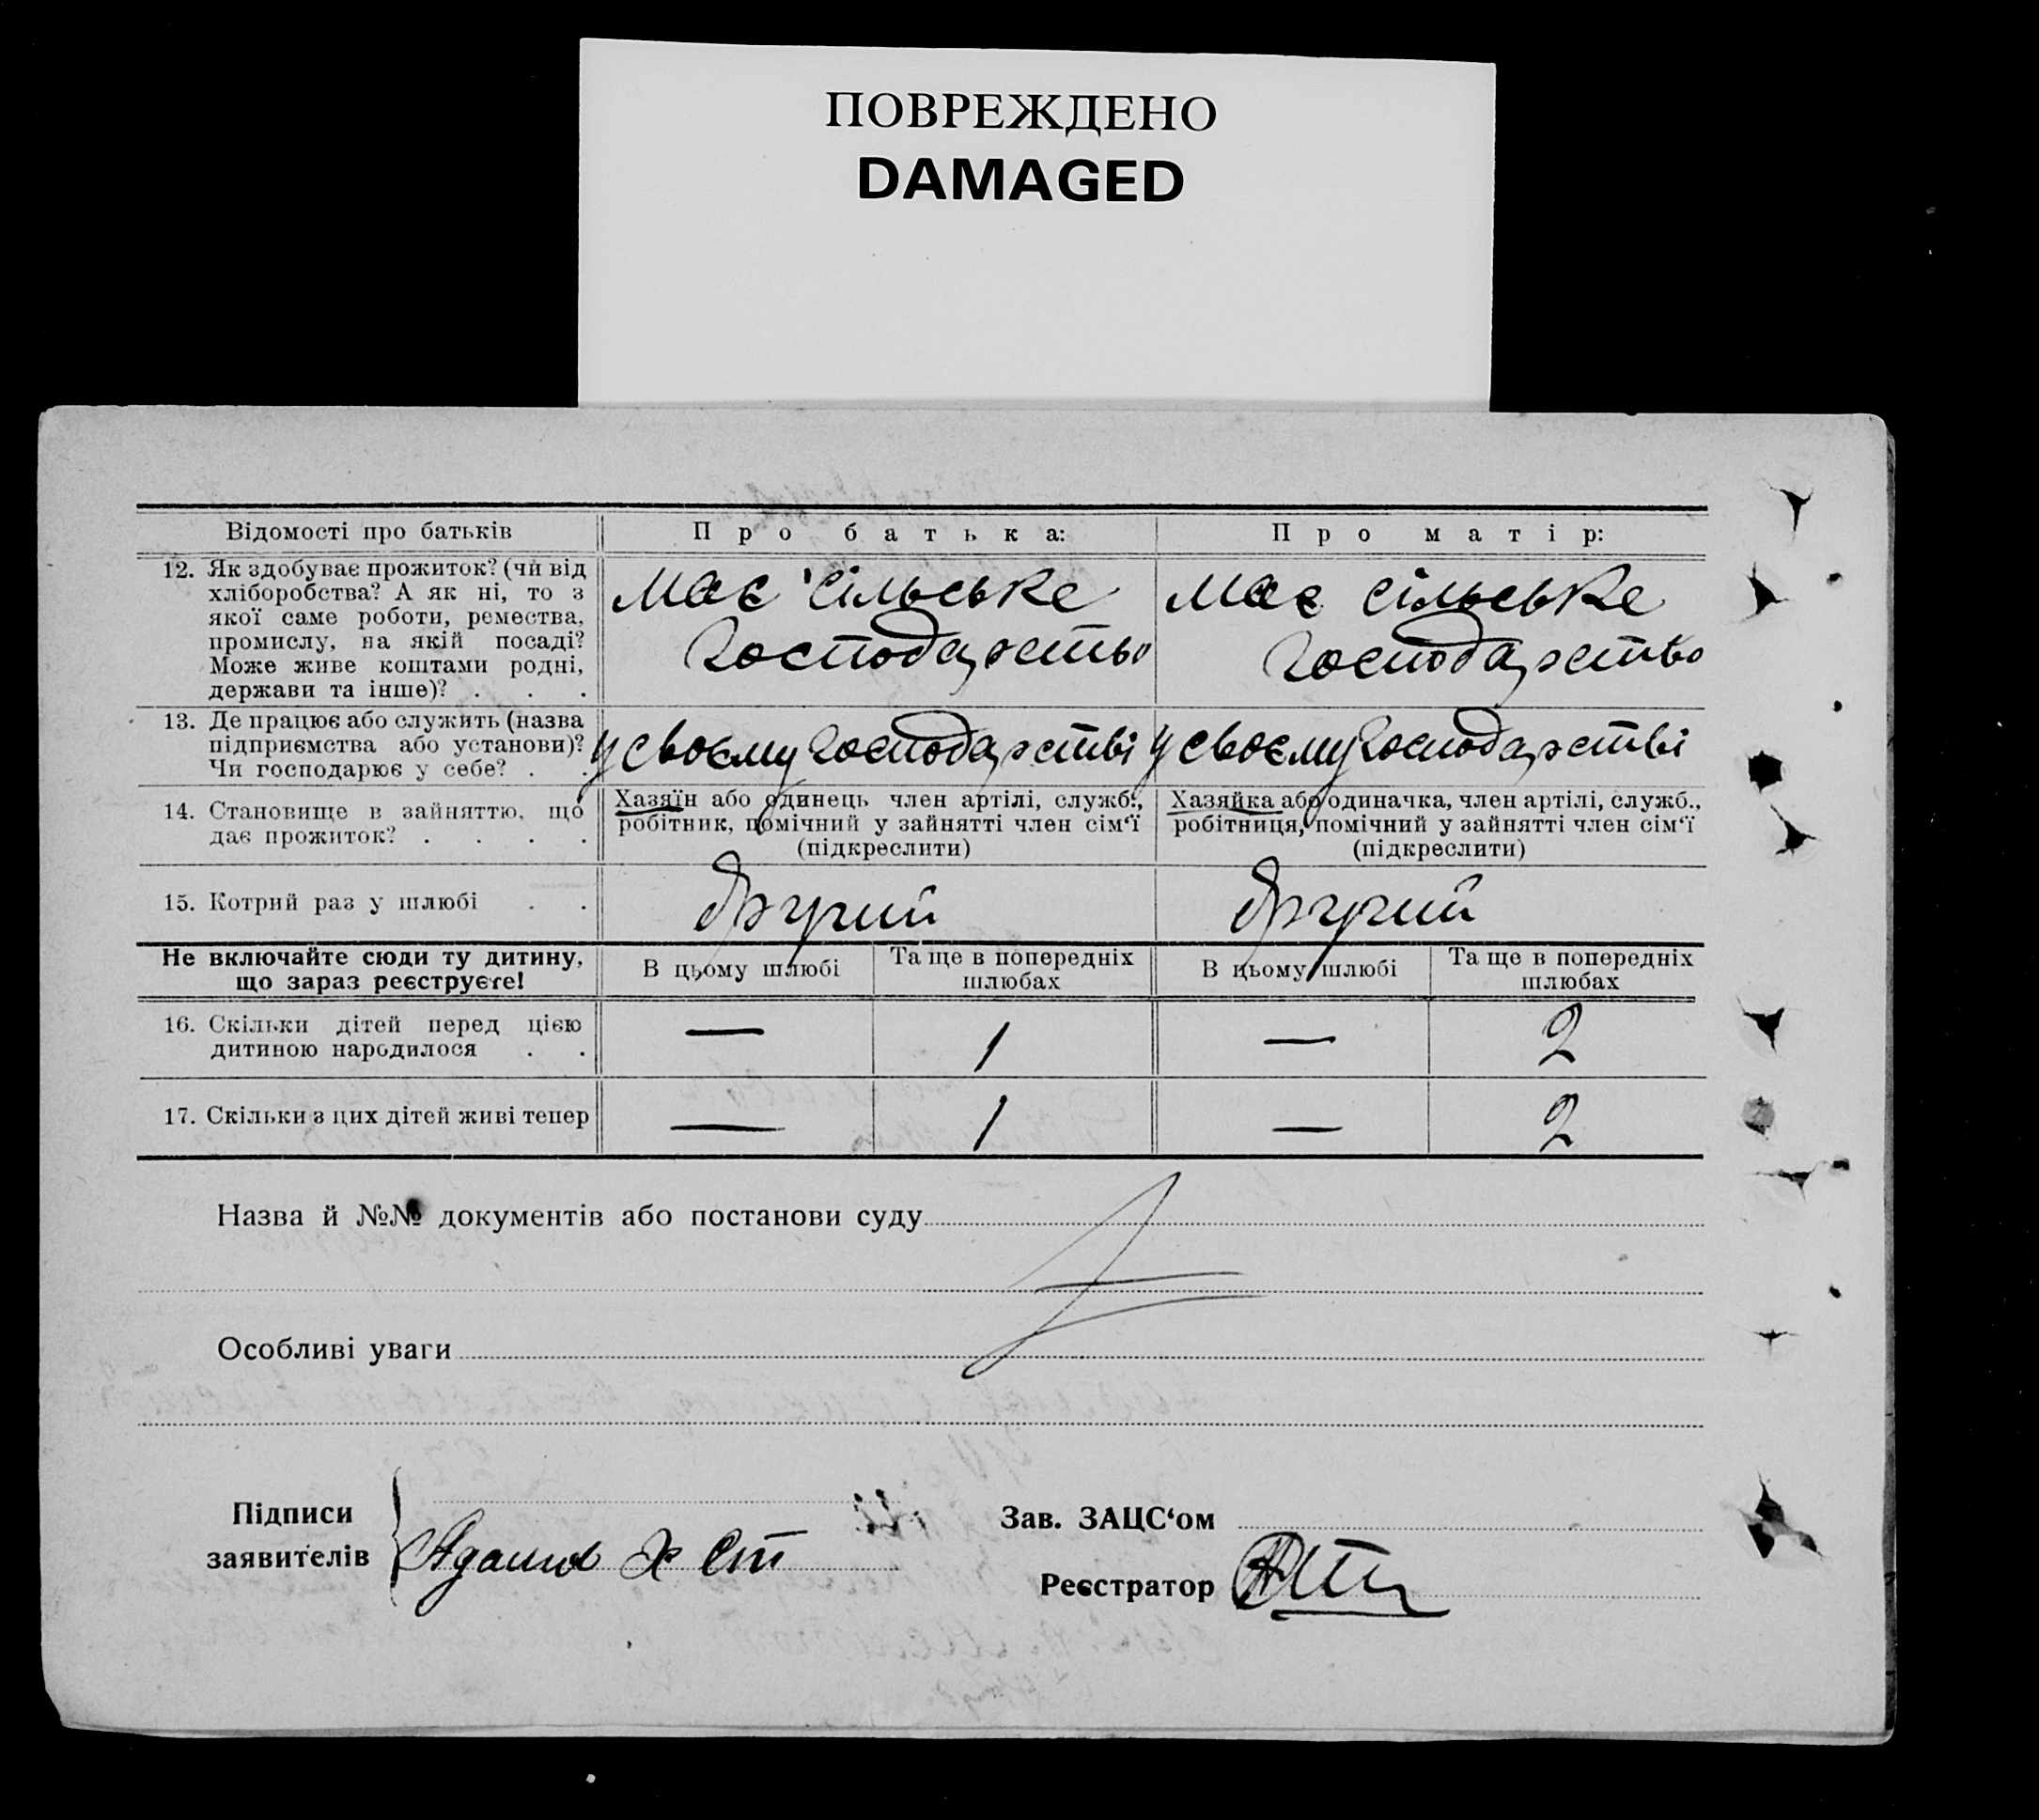 ПОВРЕЖДЕНО
DAMAGED
Відомості про батьків
Про батька:
Про матір:
12. Як здобуває прожиток? (чи від
хліборобства? А як ні, то з
якої саме роботи, ремества,
промислу, на якій посаді?
Може живе коштами родні,
держави та інше)? . . .
має сільське
господарство
має сільське
господарство
13. Де працює або служить (назва
підприємства або установи)?
Чи господарює у себе? . .
у своєму господарстві
у своєму господарстві
14. Становище в зайняттю, що
дає прожиток? . . . .
Хазяїн або одинець член артілі, служб.,
робітник, помічний у зайнятті член сім‘ї
(підкреслити)
Хазяйка або одиначка, член артілі, служб.,
робітниця, помічний у зайнятті член сім‘ї
(підкреслити)
15. Котрий раз у шлюбі . .
Другий
Другий
Не включайте сюди ту дитину,
що зараз реєструєте!
В цьому шлюбі
Та ще в попередніх
шлюбах
В цьому шлюбі
Та ще в попередніх
шлюбах
16. Скільки дітей перед цією
дитиною народилося . .
—
1
—
2
17. Скільки з цих дітей живі тепер
—
1
—
2
Назва й №№ документів або постанови суду
Особливі уваги
Підписи
заявителів
Зав. ЗАЦС‘ом
Реєстратор